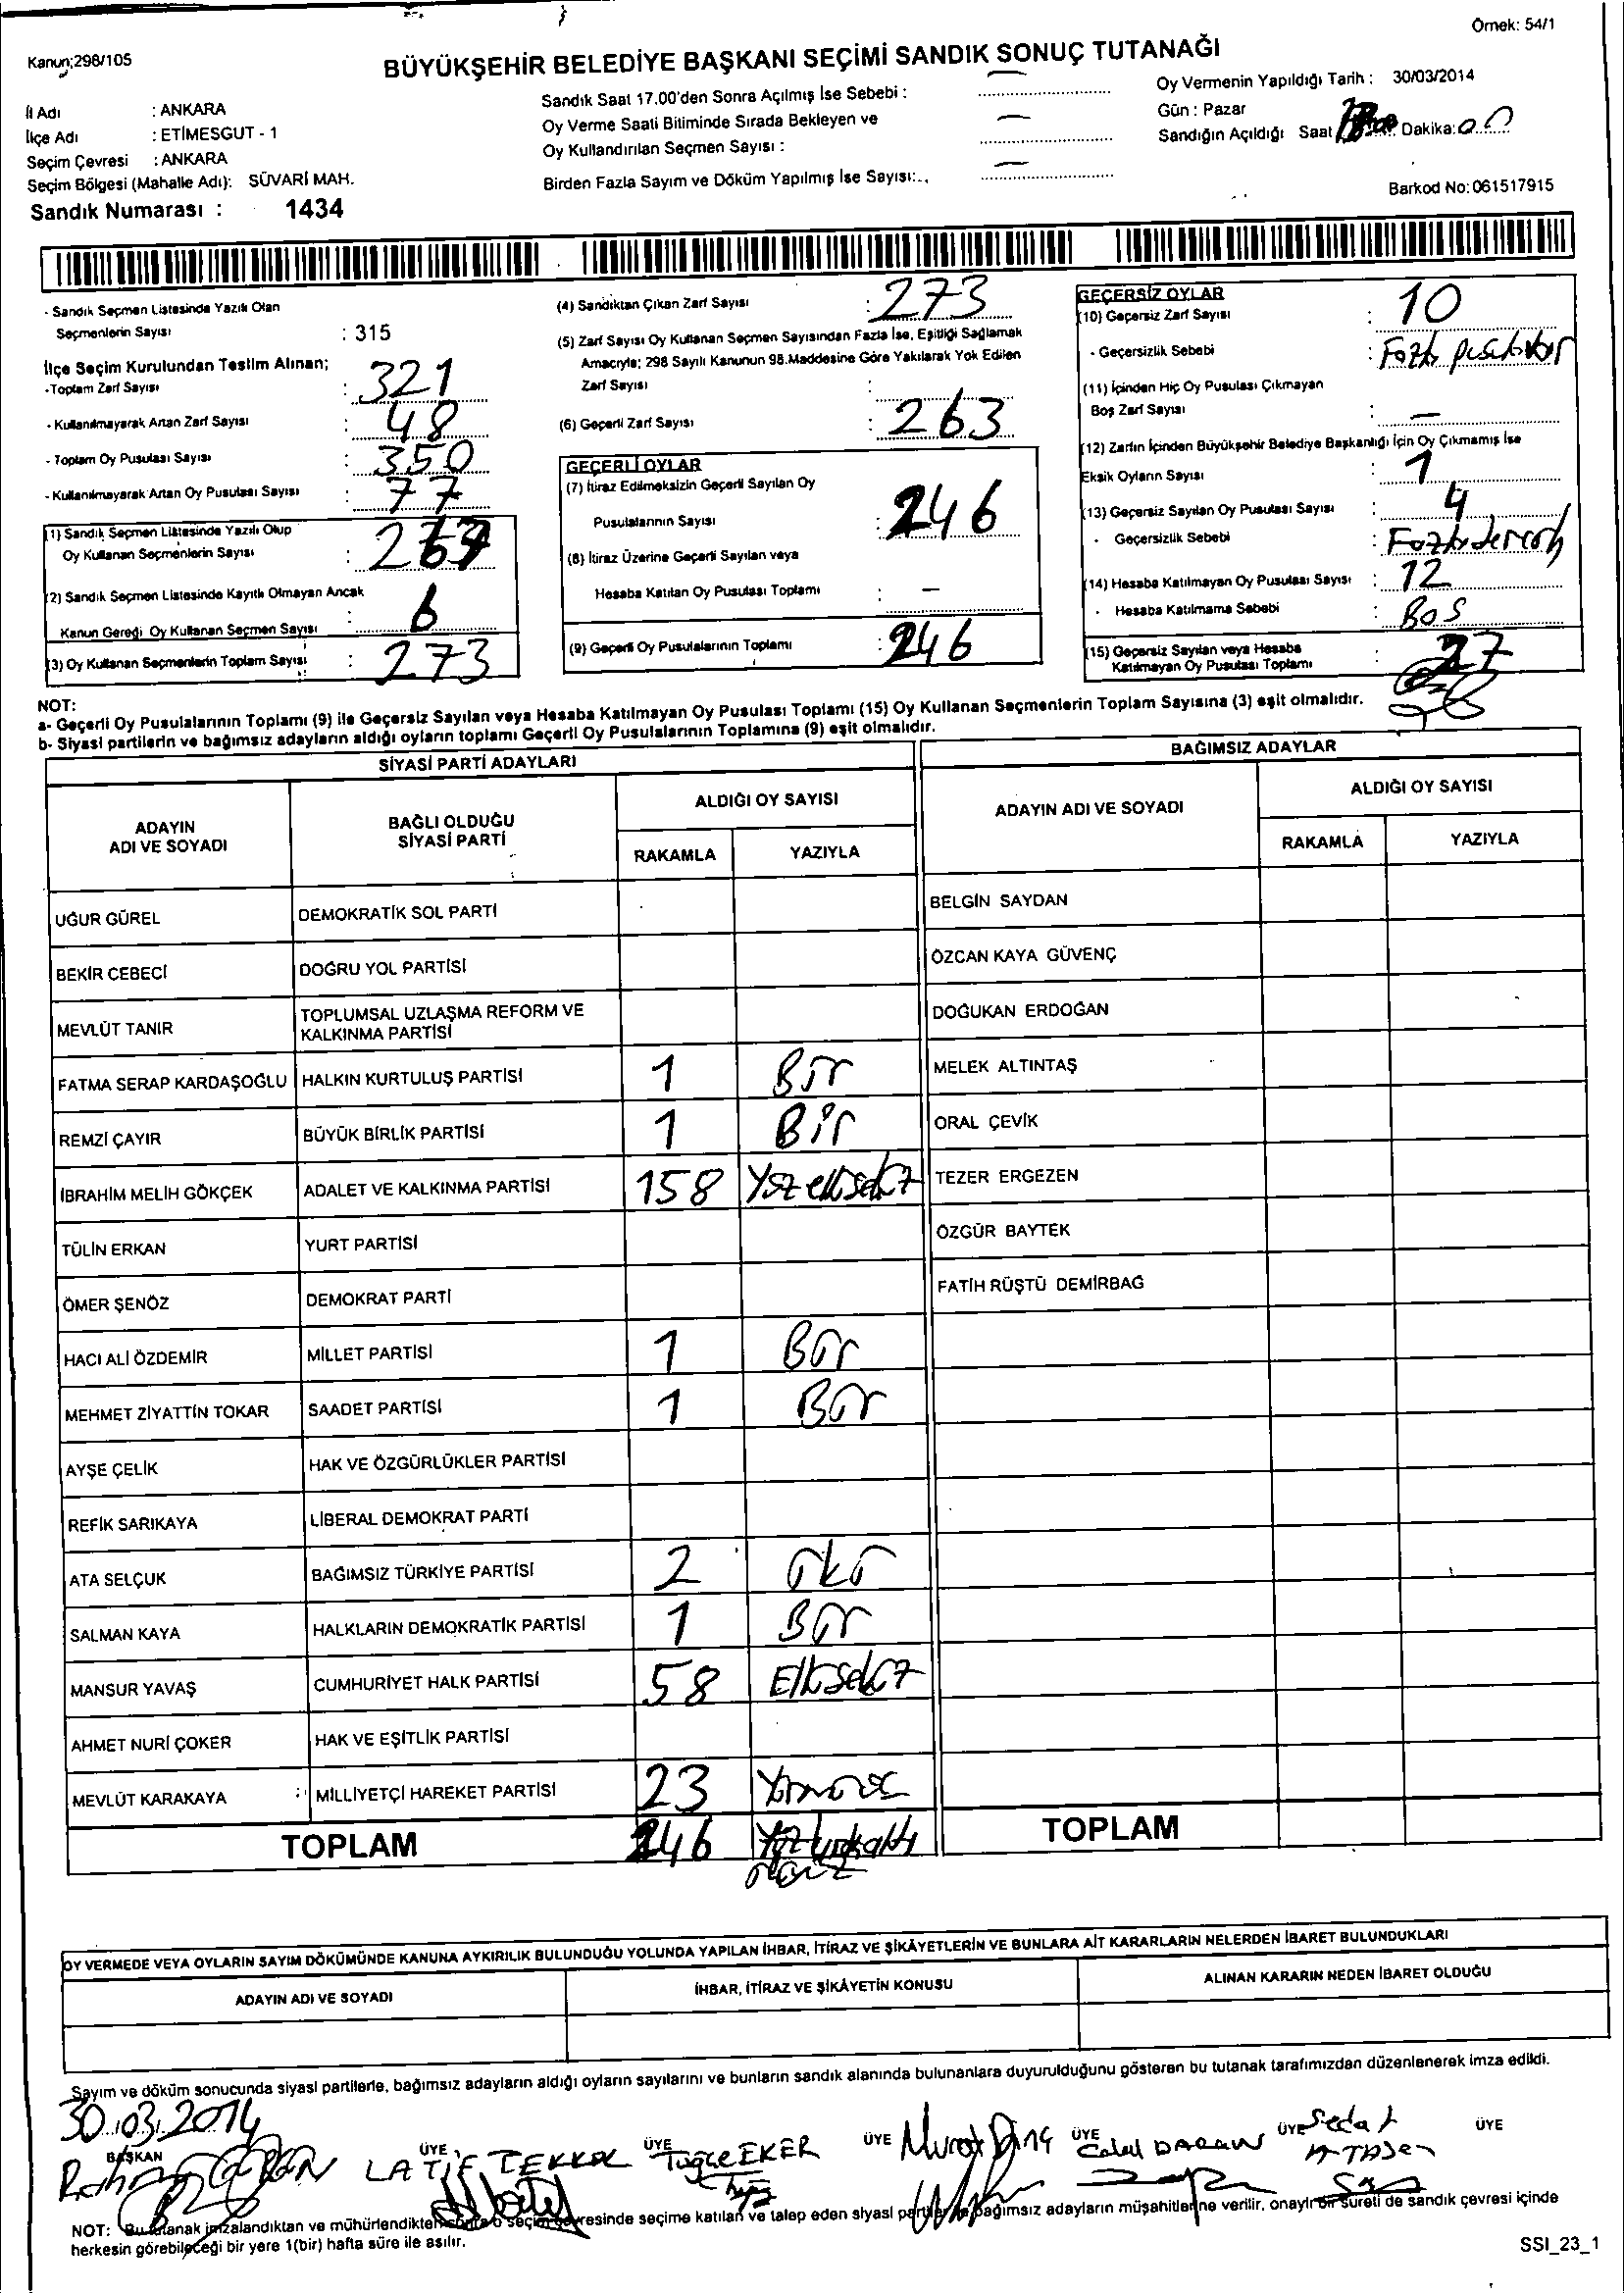 Örnek: 54/1
Kanun;298/105
BÜYÜKŞEHİR BELEDİYE BAŞKANI SEÇİMİ SANDIK SONUÇ TUTANAĞI
İl Adı : ANKARA
İlçe Adı : ETİMESGUT - 1
Seçim Çevresi : ANKARA
Seçim Bölgesi (Mahalle Adı): SÜVARİ MAH.
Sandık Numarası : 1434
Sandık Saat 17.00'den Sonra Açılmış İse Sebebi : —
Oy Verme Saati Bitiminde Sırada Bekleyen ve
Oy Kullandırılan Seçmen Sayısı : —
Birden Fazla Sayım ve Döküm Yapılmış İse Sayısı: —
Oy Vermenin Yapıldığı Tarih : 30/03/2014
Gün : Pazar
Sandığın Açıldığı Saat Dakika: 00
Barkod No: 061517915
- Sandık Seçmen Listesinde Yazılı Olan
Seçmenlerin Sayısı : 315
İlçe Seçim Kurulundan Teslim Alınan;
-Toplam Zarf Sayısı : 321
- Kullanılmayarak Artan Zarf Sayısı : 48
- Toplam Oy Pusulası Sayısı : 350
- Kullanılmayarak Artan Oy Pusulası Sayısı : 77
(1) Sandık Seçmen Listesinde Yazılı Olup
Oy Kullanan Seçmenlerin Sayısı : 267
(2) Sandık Seçmen Listesinde Kayıtlı Olmayan Ancak
Kanun Gereği Oy Kullanan Seçmen Sayısı : 6
(3) Oy Kullanan Seçmenlerin Toplam Sayısı : 273
(4) Sandıktan Çıkan Zarf Sayısı : 273
(5) Zarf Sayısı Oy Kullanan Seçmen Sayısından Fazla İse, Eşitliği Sağlamak
Amacıyla; 298 Sayılı Kanunun 98.Maddesine Göre Yakılarak Yok Edilen
Zarf Sayısı :
(6) Geçerli Zarf Sayısı : 263
GEÇERLİ OYLAR
(7) İtiraz Edilmeksizin Geçerli Sayılan Oy
Pusulalarının Sayısı : 246
(8) İtiraz Üzerine Geçerli Sayılan veya
Hesaba Katılan Oy Pusulası Toplamı : —
(9) Geçerli Oy Pusulalarının Toplamı : 246
GEÇERSİZ OYLAR
(10) Geçersiz Zarf Sayısı : 10
- Geçersizlik Sebebi : Fazla
(11) İçinden Hiç Oy Pusulası Çıkmayan
Boş Zarf Sayısı : —
(12) Zarfın İçinden Büyükşehir Belediye Başkanlığı İçin Oy Çıkmamış İse
Eksik Oyların Sayısı : 1
(13) Geçersiz Sayılan Oy Pusulası Sayısı : 4
- Geçersizlik Sebebi : Fazla
(14) Hesaba Katılmayan Oy Pusulası Sayısı : 12
- Hesaba Katılmama Sebebi : BOŞ
(15) Geçersiz Sayılan veya Hesaba
Katılmayan Oy Pusulası Toplamı : 27
NOT:
a- Geçerli Oy Pusulalarının Toplamı (9) ile Geçersiz Sayılan veya Hesaba Katılmayan Oy Pusulası Toplamı (15) Oy Kullanan Seçmenlerin Toplam Sayısına (3) eşit olmalıdır.
b- Siyasi partilerin ve bağımsız adayların aldığı oyların toplamı Geçerli Oy Pusulalarının Toplamına (9) eşit olmalıdır.
SİYASİ PARTİ ADAYLARI
ADAYIN ADI VE SOYADI BAĞLI OLDUĞU SİYASİ PARTİ ALDIĞI OY SAYISI
RAKAMLA YAZIYLA
UĞUR GÜREL DEMOKRATİK SOL PARTİ
BEKİR CEBECİ DOĞRU YOL PARTİSİ
MEVLÜT TANIR TOPLUMSAL UZLAŞMA REFORM VE KALKINMA PARTİSİ
FATMA SERAP KARDAŞOĞLU HALKIN KURTULUŞ PARTİSİ 1 Bir
REMZİ ÇAYIR BÜYÜK BİRLİK PARTİSİ 1 Bir
İBRAHİM MELİH GÖKÇEK ADALET VE KALKINMA PARTİSİ 158 Yüzellisekiz
TÜLİN ERKAN YURT PARTİSİ
ÖMER ŞENÖZ DEMOKRAT PARTİ
HACI ALİ ÖZDEMİR MİLLET PARTİSİ 1 Bir
MEHMET ZİYATTİN TOKAR SAADET PARTİSİ 1 Bir
AYŞE ÇELİK HAK VE ÖZGÜRLÜKLER PARTİSİ
REFİK SARIKAYA LİBERAL DEMOKRAT PARTİ
ATA SELÇUK BAĞIMSIZ TÜRKİYE PARTİSİ 2 iki
SALMAN KAYA HALKLARIN DEMOKRATİK PARTİSİ 1 Bir
MANSUR YAVAŞ CUMHURİYET HALK PARTİSİ 58 Ellisekiz
AHMET NURİ ÇOKER HAK VE EŞİTLİK PARTİSİ
MEVLÜT KARAKAYA MİLLİYETÇİ HAREKET PARTİSİ 23 Yirmiüç
TOPLAM 246
BAĞIMSIZ ADAYLAR
ADAYIN ADI VE SOYADI ALDIĞI OY SAYISI
RAKAMLA YAZIYLA
BELGİN SAYDAN
ÖZCAN KAYA GÜVENÇ
DOĞUKAN ERDOĞAN
MELEK ALTINTAŞ
ORAL ÇEVİK
TEZER ERGEZEN
ÖZGÜR BAYTEK
FATİH RÜŞTÜ DEMİRBAĞ
TOPLAM
OY VERMEDE VEYA OYLARIN SAYIM DÖKÜMÜNDE KANUNA AYKIRILIK BULUNDUĞU YOLUNDA YAPILAN İHBAR, İTİRAZ VE ŞİKÂYETLERİN VE BUNLARA AİT KARARLARIN NELERDEN İBARET BULUNDUKLARI
ADAYIN ADI VE SOYADI İHBAR, İTİRAZ VE ŞİKÂYETİN KONUSU ALINAN KARARIN NEDEN İBARET OLDUĞU
Sayım ve döküm sonucunda siyasi partilerle, bağımsız adayların aldığı oyların sayılarını ve bunların sandık alanında bulunanlara duyurulduğunu gösteren bu tutanak tarafımızdan düzenlenerek imza edildi.
30.03.2014
BAŞKAN ÜYE ÜYE ÜYE ÜYE ÜYE ÜYE
LATİF TEKKOL Tuğçe EKER Murat Celal Sedat
NOT: Bu tutanak imzalandıktan ve mühürlendikten sonra o seçim çevresinde seçime katılan ve talep eden siyasi partiler ile bağımsız adayların müşahitlerine verilir, onaylı bir sureti de sandık çevresi içinde
herkesin görebileceği bir yere 1(bir) hafta süre ile asılır.
SSI_23_1